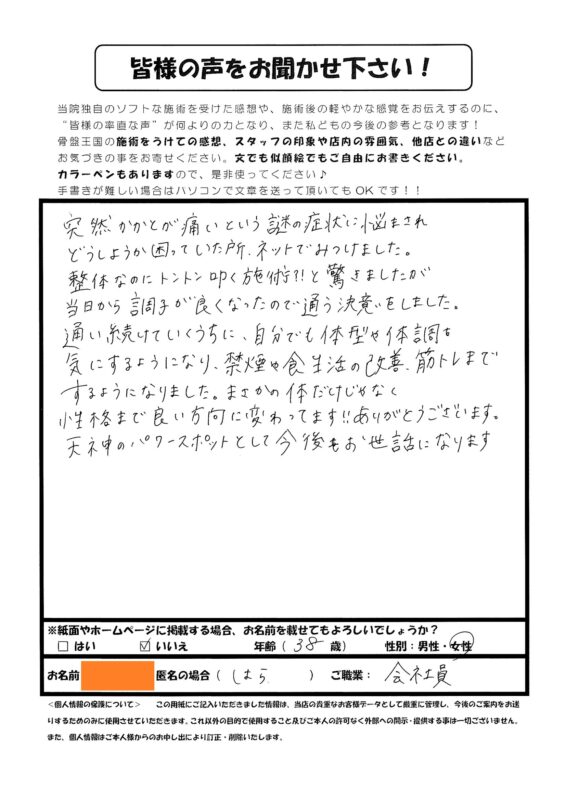 皆様の声をお聞かせ下さい！
当院独自のソフトな施術を受けた感想や、施術後の軽やかな感覚をお伝えするのに、
“皆様の率直な声”が何よりの力となり、また私どもの今後の参考となります！
骨盤王国の施術をうけての感想、スタッフの印象や店内の雰囲気、他店との違いなど
お気づきの事をお寄せください。文でも似顔絵でもご自由にお書きください。
カラーペンもありますので、是非使ってください♪
手書きが難しい場合はパソコンで文章を送って頂いてもOKです！！
突然かかとが痛いという謎の症状に悩まされ
どうしようか困っていた所、ネットでみつけました。
整体なのにトントン叩く施術?!と驚きましたが
当日から調子が良くなったので通う決意をしました。
通い続けていくうちに、自分でも体型や体調を
気にするようになり、禁煙や食生活の改善、筋トレまで
するようになりました。まさかの体だけじゃなく
性格まで良い方向に変わってます!!ありがとうございます。
天神のパワースポットとして今後もお世話になります
※紙面やホームページに掲載する場合、お名前を載せてもよろしいでしょうか？
□ はい ☑ いいえ 年齢（ 38 歳） 性別：男性・女性
お名前 匿名の場合（ しはら ） ご職業： 会社員
＜個人情報の保護について＞ この用紙にご記入いただきました情報は、当店の貴重なお客様データとして厳重に管理し、今後のご案内をお送
りするためのみに使用させていただきます。これ以外の目的で使用すること及びご本人の許可なく外部への開示・提供する事は一切ございません。
また、個人情報はご本人様からのお申し出により訂正・削除いたします。